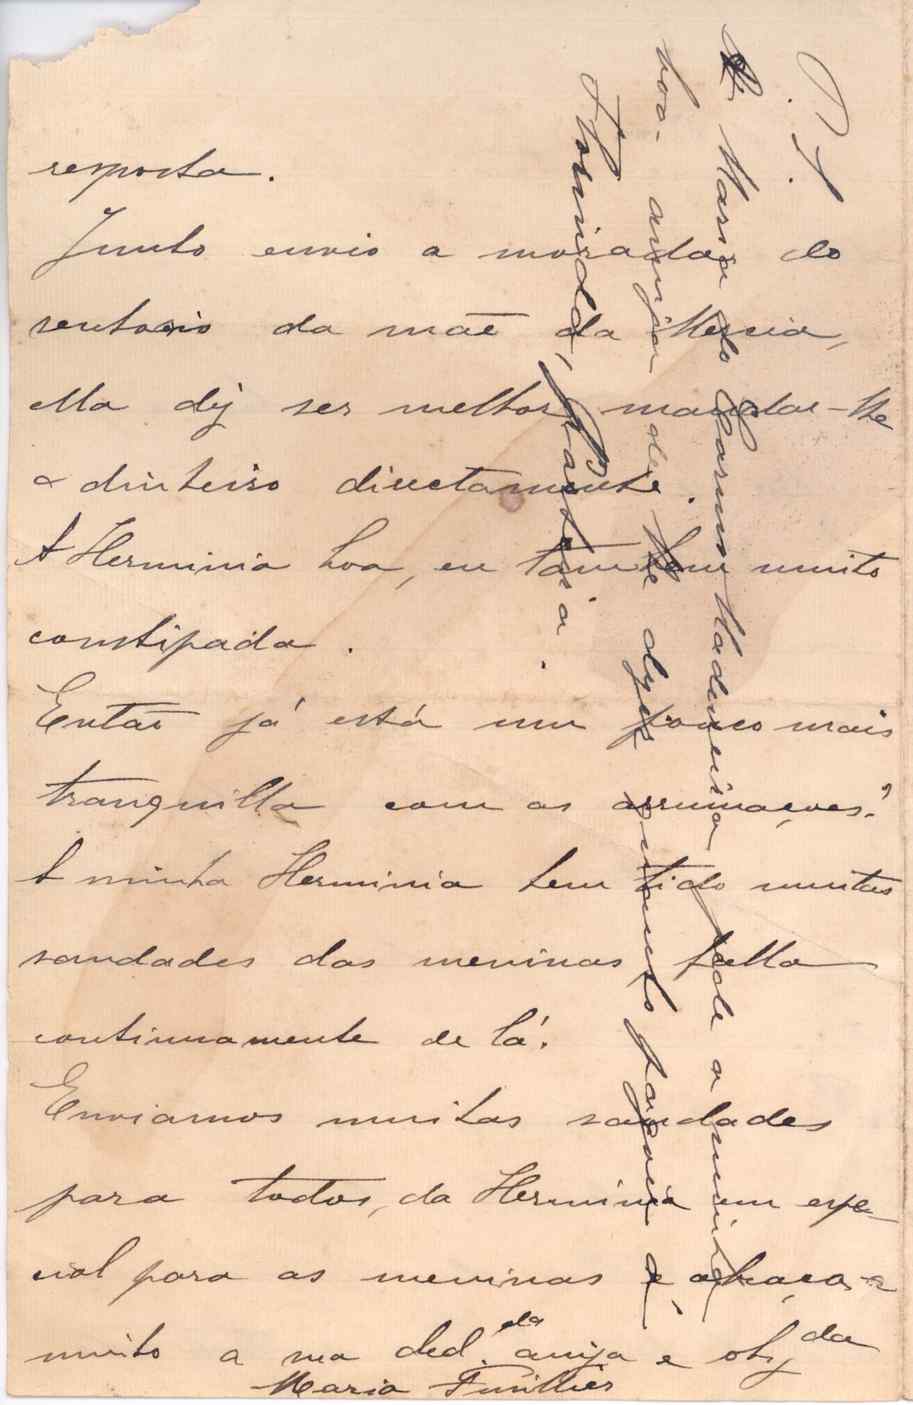 resposta.
Junto envio a morada do
senhorio da mãe da Mercia,
ella diz ser melhor mandar-lhe
o dinheiro directamente.
A Herminia boa, eu tambem muito
constipada.
Então já está um pouco mais
tranquilla com as arrumações?
A minha Herminia tem tido muitas
saudades das meninas, falla
continuamente de lá.
Enviamos muitas saudades
para todos, da Herminia em espe-
cial para as meninas e abraça-a
muito a sua ded.da amiga e obg.da
Maria Furillier
P. S.
A Maria do Carmo Madureira pede a minha
boa amiga de lhe dizer quanto pagou á
Florinda, parteira.